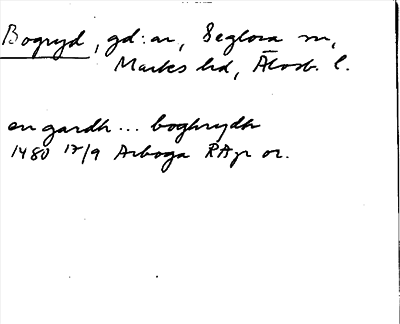 Bogryd, gd:ar, Seglora sn,
Marks hd, Älvsb. l.
en gardh ... boghrydh
1480 17/9 Arboga RAp or.